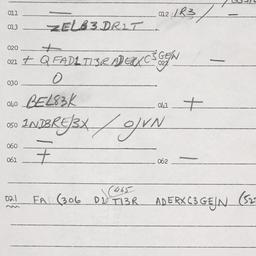 011 — 012 1R3 / —
013 ZEL83DR2T
020 +
021 + QFAD1TI3RADERXC3GEJN 022 —
030 O
040 BEL83K 041 +
050 2NDBREJ3X / OJVN
060 —
061 + 062 —
021 FA (306 D1 TI3R ADERXC3GEJN